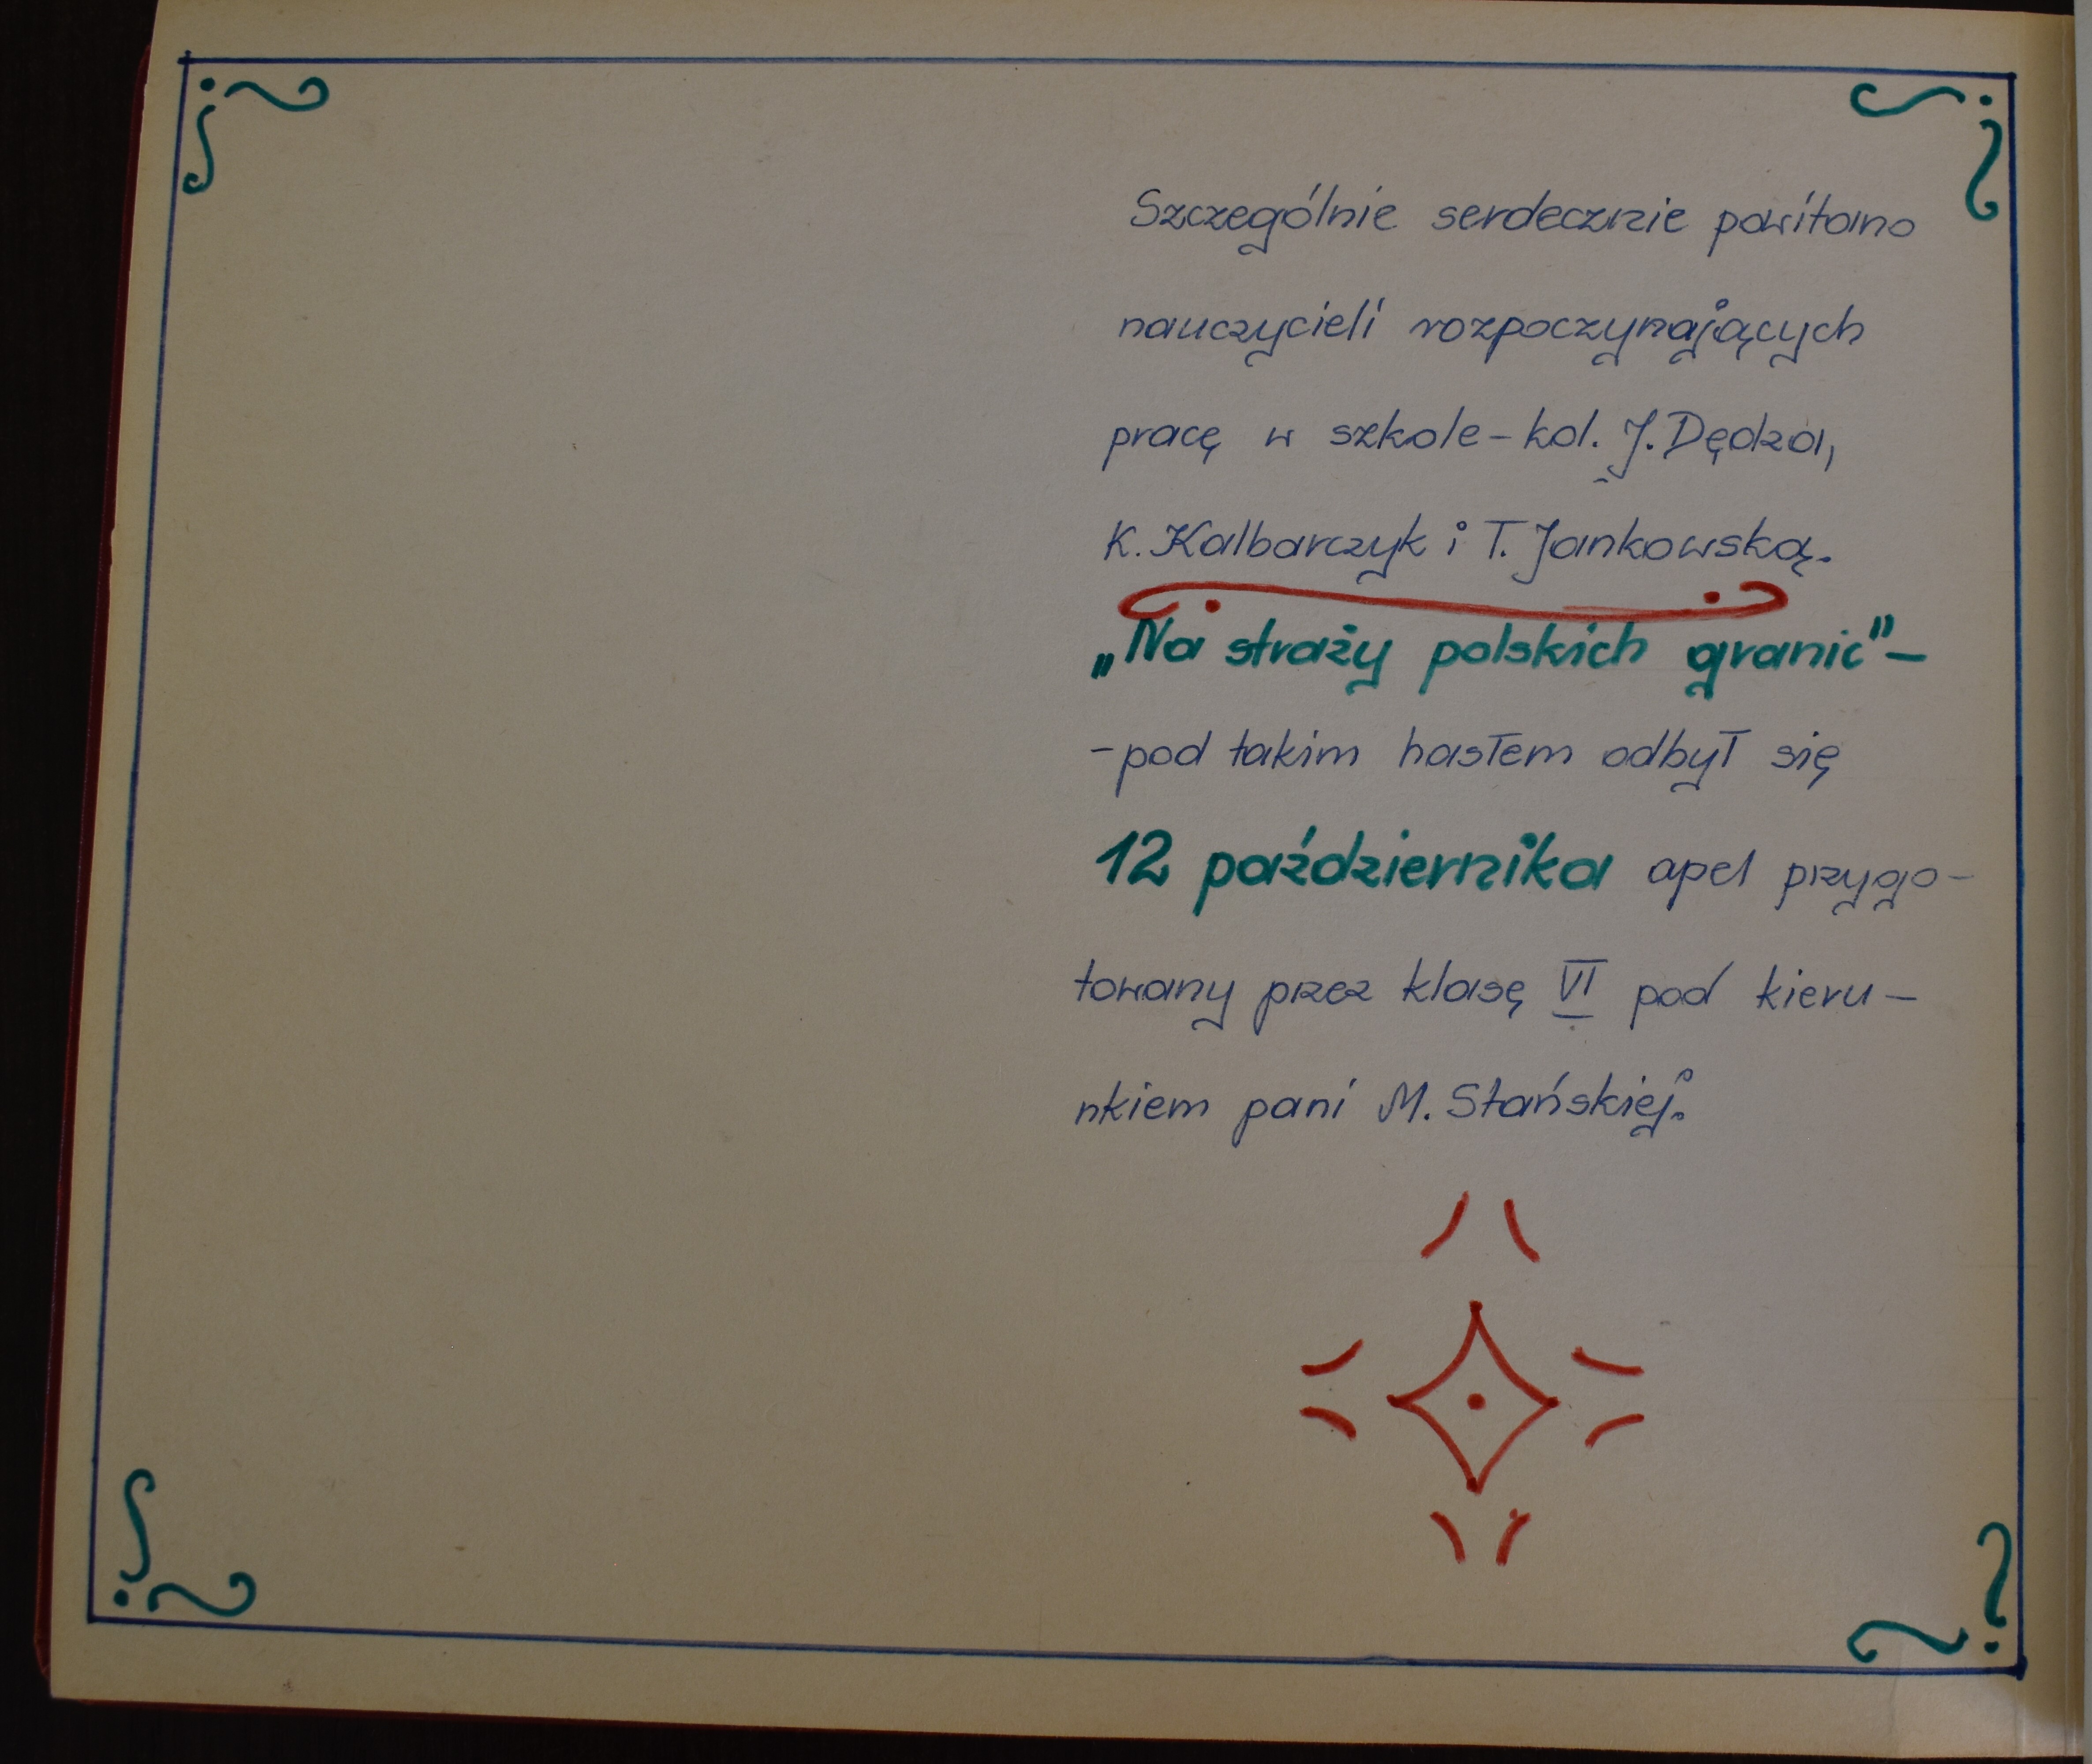 Szczególnie serdecznie powitano
nauczycieli rozpoczynających
pracę w szkole - kol. J. Dędza,
K. Kalbarczyk i T. Jankowską.
„Na straży polskich granic" -
- pod takim hasłem odbył się
12 października apel przygo-
towany przez klasę VI pod kieru-
nkiem pani M. Stańskiej.